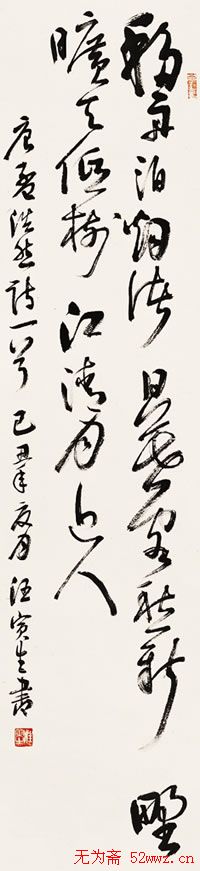 移舟泊烟渚日暮客愁新野
旷天低树江清月近人
唐孟浩然诗一首己丑年夏月汪寅生书
无为斋 52wwz.cn